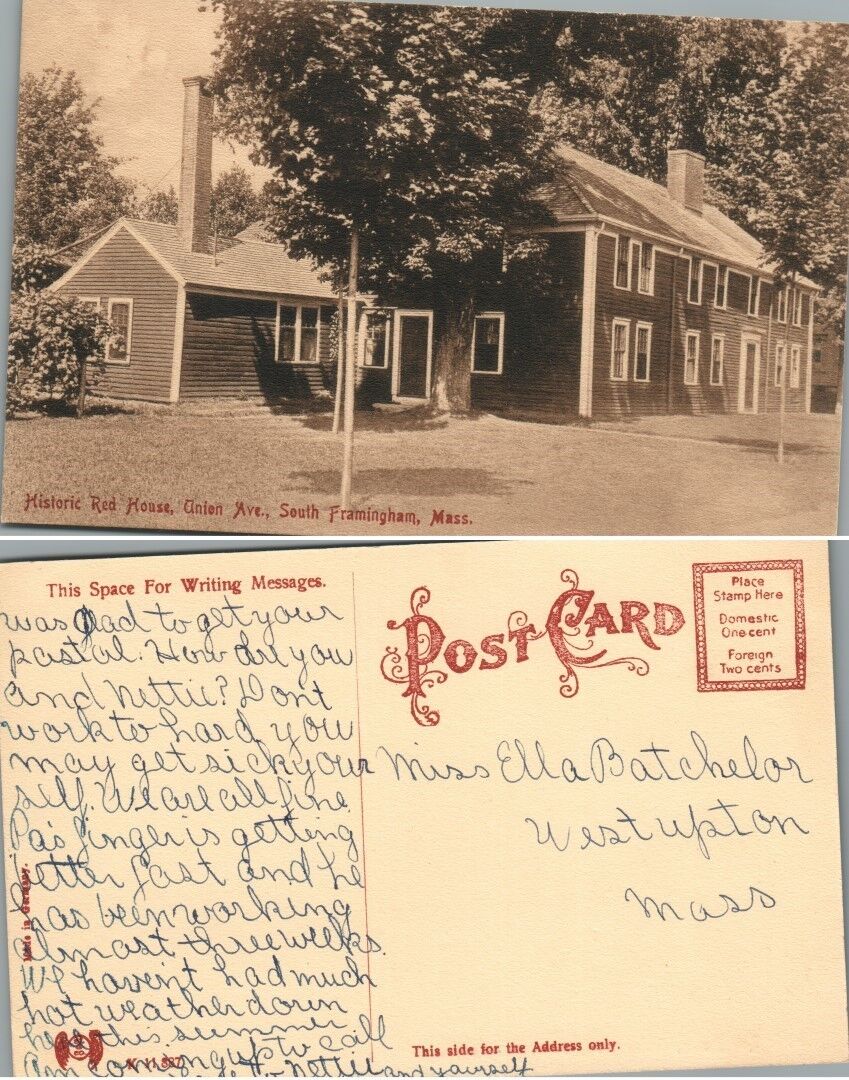 Historic Red House, Union Ave., South Framingham, Mass.
This Space For Writing Messages.
was glad to get your
postal. How are you
and Nettie? Dont
work to hard you
may get sick your
self. We are all fine.
Pa's finger is getting
better fast and he
has been working
almost three weeks.
We haven't had much
hot weather down
here this summer
Am coming up to call
Nettie and yourself
Made in Germany.
POST CARD
Place
Stamp Here
Domestic
One cent
Foreign
Two cents
Miss Ella Batchelor
West Upton
Mass
This side for the Address only.